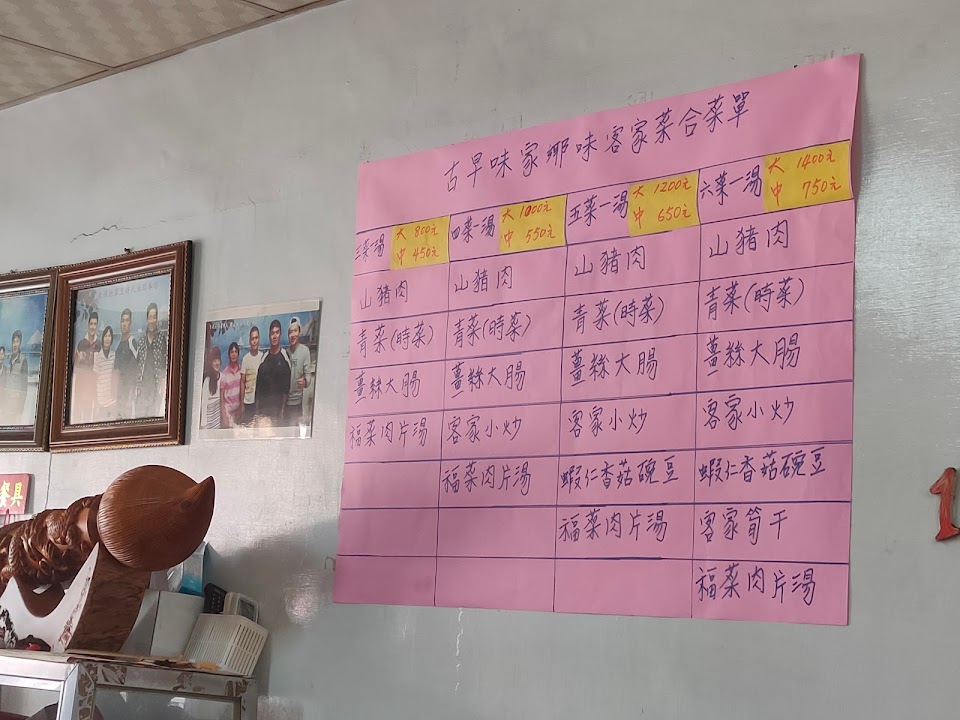 古早味家鄉味客家菜合菜單
三菜一湯 大 800元 中 450元
四菜一湯 大 1000元 中 550元
五菜一湯 大 1200元 中 650元
六菜一湯 大 1400元 中 750元
山豬肉 山豬肉 山豬肉 山豬肉
青菜(時菜) 青菜(時菜) 青菜(時菜) 青菜(時菜)
薑絲大腸 薑絲大腸 薑絲大腸 薑絲大腸
福菜肉片湯 客家小炒 客家小炒 客家小炒
福菜肉片湯 蝦仁香菇碗豆 蝦仁香菇碗豆
福菜肉片湯 客家筍干
福菜肉片湯
餐具
1